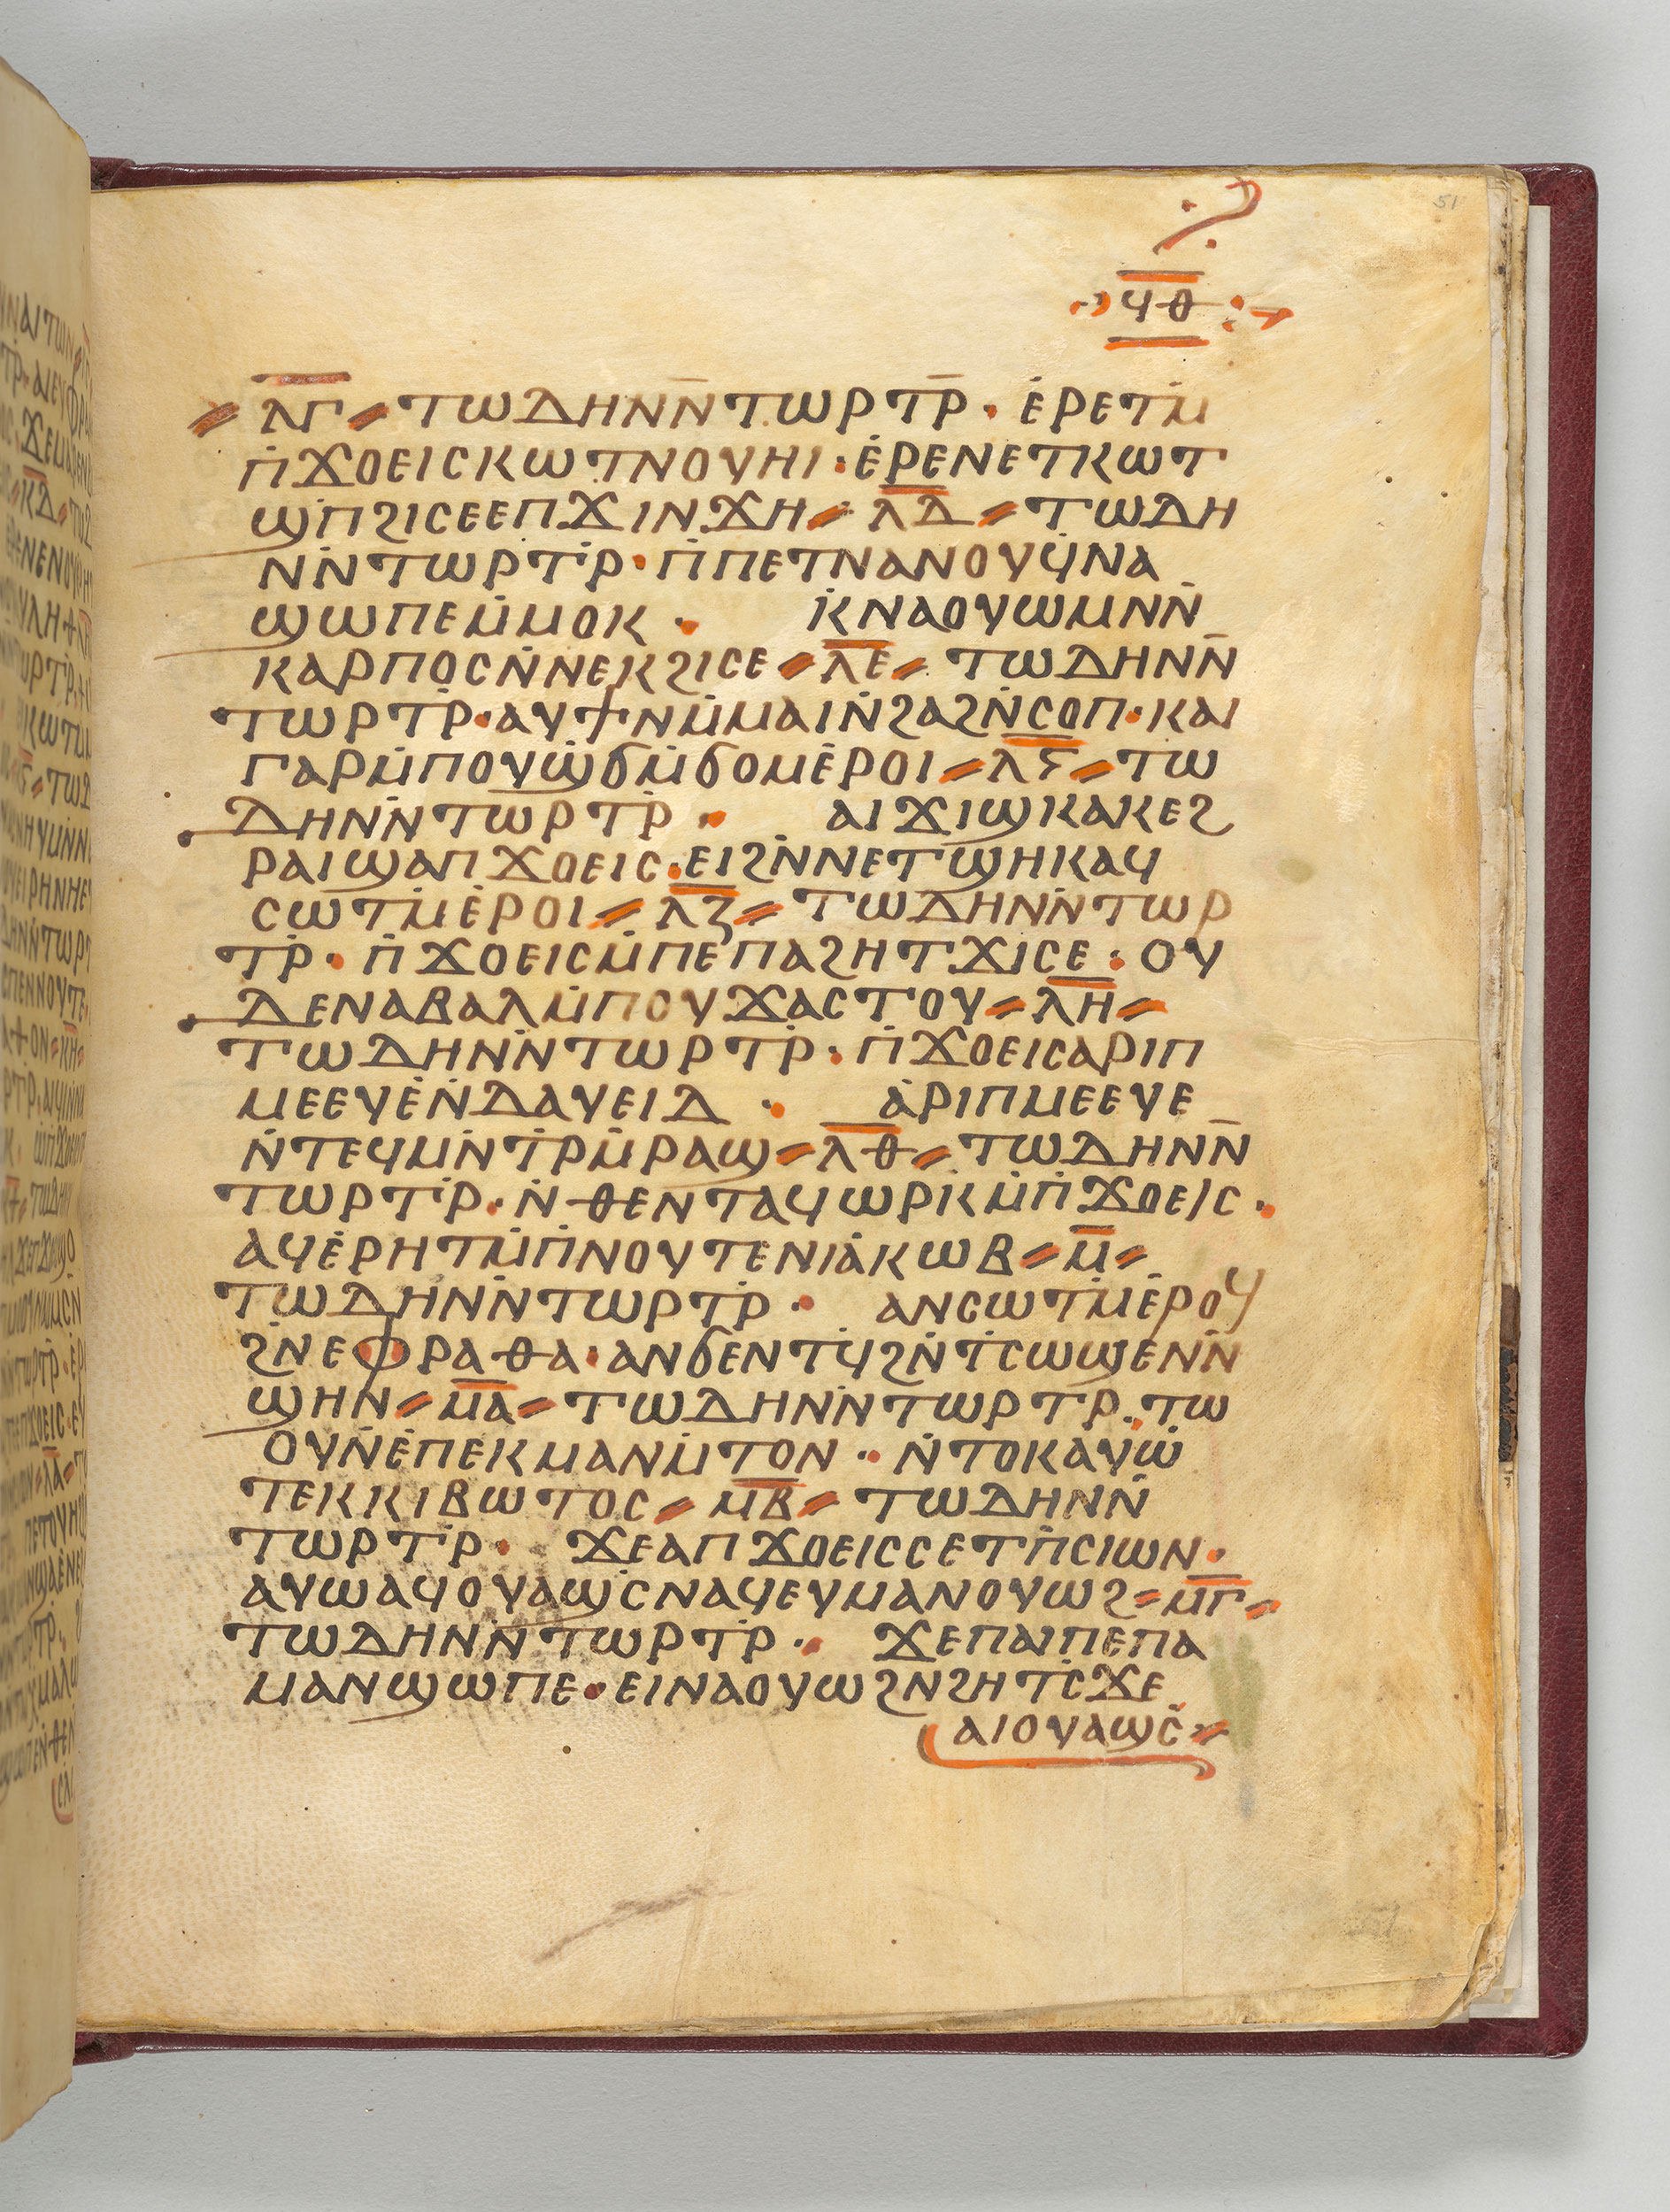 51
ϥⲑ
ⲗⲅ ⲧⲱⲇⲏⲛⲛ̄ⲧⲱⲣⲧⲣ̄· ⲉ̇ⲣⲉⲧⲙ̇
ⲡ̇ϫⲟⲉⲓⲥⲕⲱⲧⲛⲟⲩⲏⲓ· ⲉ̇ⲣⲉⲛⲉⲧⲕⲱⲧ
ϣ̇ⲡϩⲓⲥⲉⲉⲡϫⲓⲛϫⲏ ⲗⲇ ⲧⲱⲇⲏ
ⲛⲛ̇ⲧⲱⲣⲧⲣ̇· ⲡ̇ⲡⲉⲧⲛⲁⲛⲟⲩϥ̇ⲛⲁ
ϣⲱⲡⲉⲙ̇ⲙⲟⲕ· ⲕ̇ⲛⲁⲟⲩⲱⲙⲛⲛ̇
ⲕⲁⲣⲡⲟⲥⲛ̇ⲛⲉⲕϩⲓⲥⲉ ⲗⲉ ⲧⲱⲇⲏⲛⲛ̄
ⲧⲱⲣⲧⲣ̇· ⲁⲩϯⲛⲙ̇ⲙⲁⲓⲛ̇ϩⲁϩⲛ̇ⲥⲟⲡ· ⲕⲁⲓ
ⲅⲁⲣⲙ̇ⲡⲟⲩϣ̇ϭⲙ̇ϭⲟⲙⲉ̇ⲣⲟⲓ ⲗⲋ ⲧⲱ
ⲇⲏⲛⲛ̇ⲧⲱⲣⲧⲣ̇· ⲁⲓϫⲓϣⲕⲁⲕⲉϩ
ⲣⲁⲓϣⲁⲡϫⲟⲉⲓⲥ· ⲉⲓϩⲛ̇ⲛⲉⲧϣⲏⲕⲁϥ
ⲥⲱⲧⲙ̇ⲉ̇ⲣⲟⲓ ⲗⲍ ⲧⲱⲇⲏⲛⲛ̇ⲧⲱⲣ
ⲧⲣ̇· ⲡ̇ϫⲟⲉⲓⲥⲙ̇ⲡⲉⲡⲁϩⲏⲧϫⲓⲥⲉ· ⲟⲩ
ⲇⲉⲛⲁⲃⲁⲗⲙ̇ⲡⲟⲩϫⲁⲥⲧⲟⲩ ⲗⲏ
ⲧⲱⲇⲏⲛⲛ̇ⲧⲱⲣⲧⲣ̇· ⲡ̇ϫⲟⲉⲓⲥⲁⲣⲓⲡ
ⲙⲉⲉⲩⲉ̇ⲛ̇ⲇⲁⲩⲉⲓⲇ· ⲁ̇ⲣⲓⲡⲙⲉⲉⲩⲉ
ⲛ̇ⲧⲉϥⲙⲛ̇ⲧⲣ̇ⲙ̇ⲣⲁϣ ⲗⲑ ⲧⲱⲇⲏⲛⲛ̄
ⲧⲱⲣⲧⲣ̇· ⲛ̇ⲑⲉⲛⲧⲁϥⲱⲣⲕ̇ⲙ̇ⲡ̇ϫⲟⲉⲓⲥ·
ⲁϥⲉ̇ⲣⲏⲧⲙ̇ⲡ̇ⲛⲟⲩⲧⲉⲛⲓⲁ̇ⲕⲱⲃ ⲙ
ⲧⲱⲇⲏⲛⲛ̇ⲧⲱⲣⲧⲣ̇· ⲁⲛⲥⲱⲧⲙ̇ⲉ̇ⲣⲟϥ
ϩⲛ̇ⲉⲫⲣⲁⲑⲁ· ⲁⲛϭⲉⲛⲧϥ̇ϩⲛ̇ⲧ̇ⲥⲱϣⲉⲛⲛ̄
ϣⲏⲛ ⲙⲁ ⲧⲱⲇⲏⲛⲛ̇ⲧⲱⲣⲧⲣ· ⲧⲱ
ⲟⲩⲛ̇ⲉ̇ⲡⲉⲕⲙⲁⲛⲙ̇ⲧⲟⲛ· ⲛ̇ⲧⲟⲕⲁⲩⲱ̇
ⲧⲉⲕⲕⲓⲃⲱⲧⲟⲥ ⲙⲃ ⲧⲱⲇⲏⲛⲛ̇
ⲧⲱⲣⲧⲣ̇· ϫⲉⲁⲡϫⲟⲉⲓⲥⲥⲉⲧⲡ̇ⲥⲓⲱⲛ·
ⲁⲩⲱⲁϥⲟⲩⲁϣⲥ̇ⲛⲁϥⲉⲩⲙⲁⲛⲟⲩⲱϩ ⲙⲅ
ⲧⲱⲇⲏⲛⲛ̇ⲧⲱⲣⲧⲣ̇· ϫⲉⲡⲁⲓⲡⲉⲡⲁ
ⲙⲁⲛϣⲱⲡⲉ· ⲉⲓⲛⲁⲟⲩⲱϩⲛϩⲏⲧⲥ̇ϫⲉ
ⲁⲓⲟⲩⲁϣⲥ̇